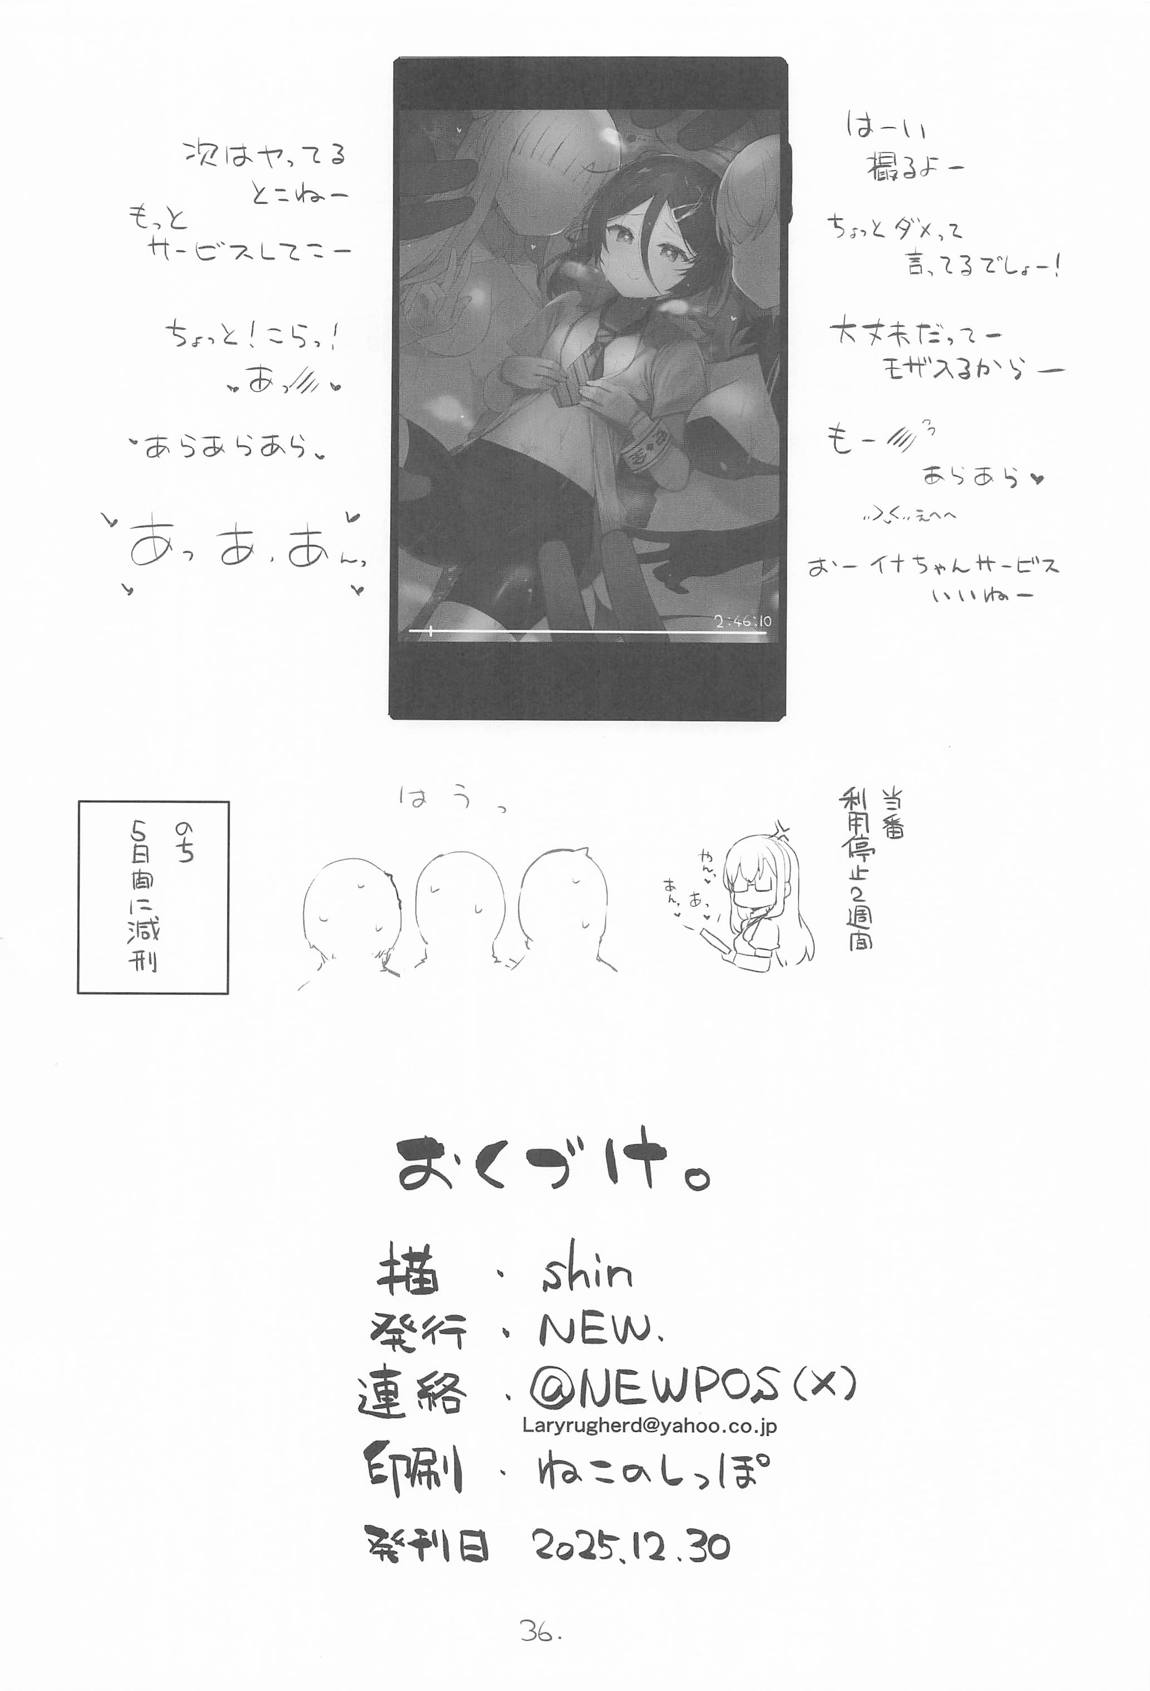 はーい
撮るよー
ちょっとダメって
言ってるでしょー!
大丈夫だってー
モザ入るからー
もー
あらあら♥
えへへ
おーイナちゃんサービス
いいねー
次はヤってる
とこねー
もっと
サービスしてこー
ちょっと!こらっ!
♥あっ♥
♥あらあらあら♥
あっあ、あんっ
2:46:10
はうっ
当番
利用停止2週間
やんっ♥
あっ♥
あんっ♥
のち
5日間に減刑
おくづけ。
描・shin
発行・NEW.
連絡・@NEWPOS(X)
Laryrugherd@yahoo.co.jp
印刷・ねこのしっぽ
発刊日 2025.12.30
36.